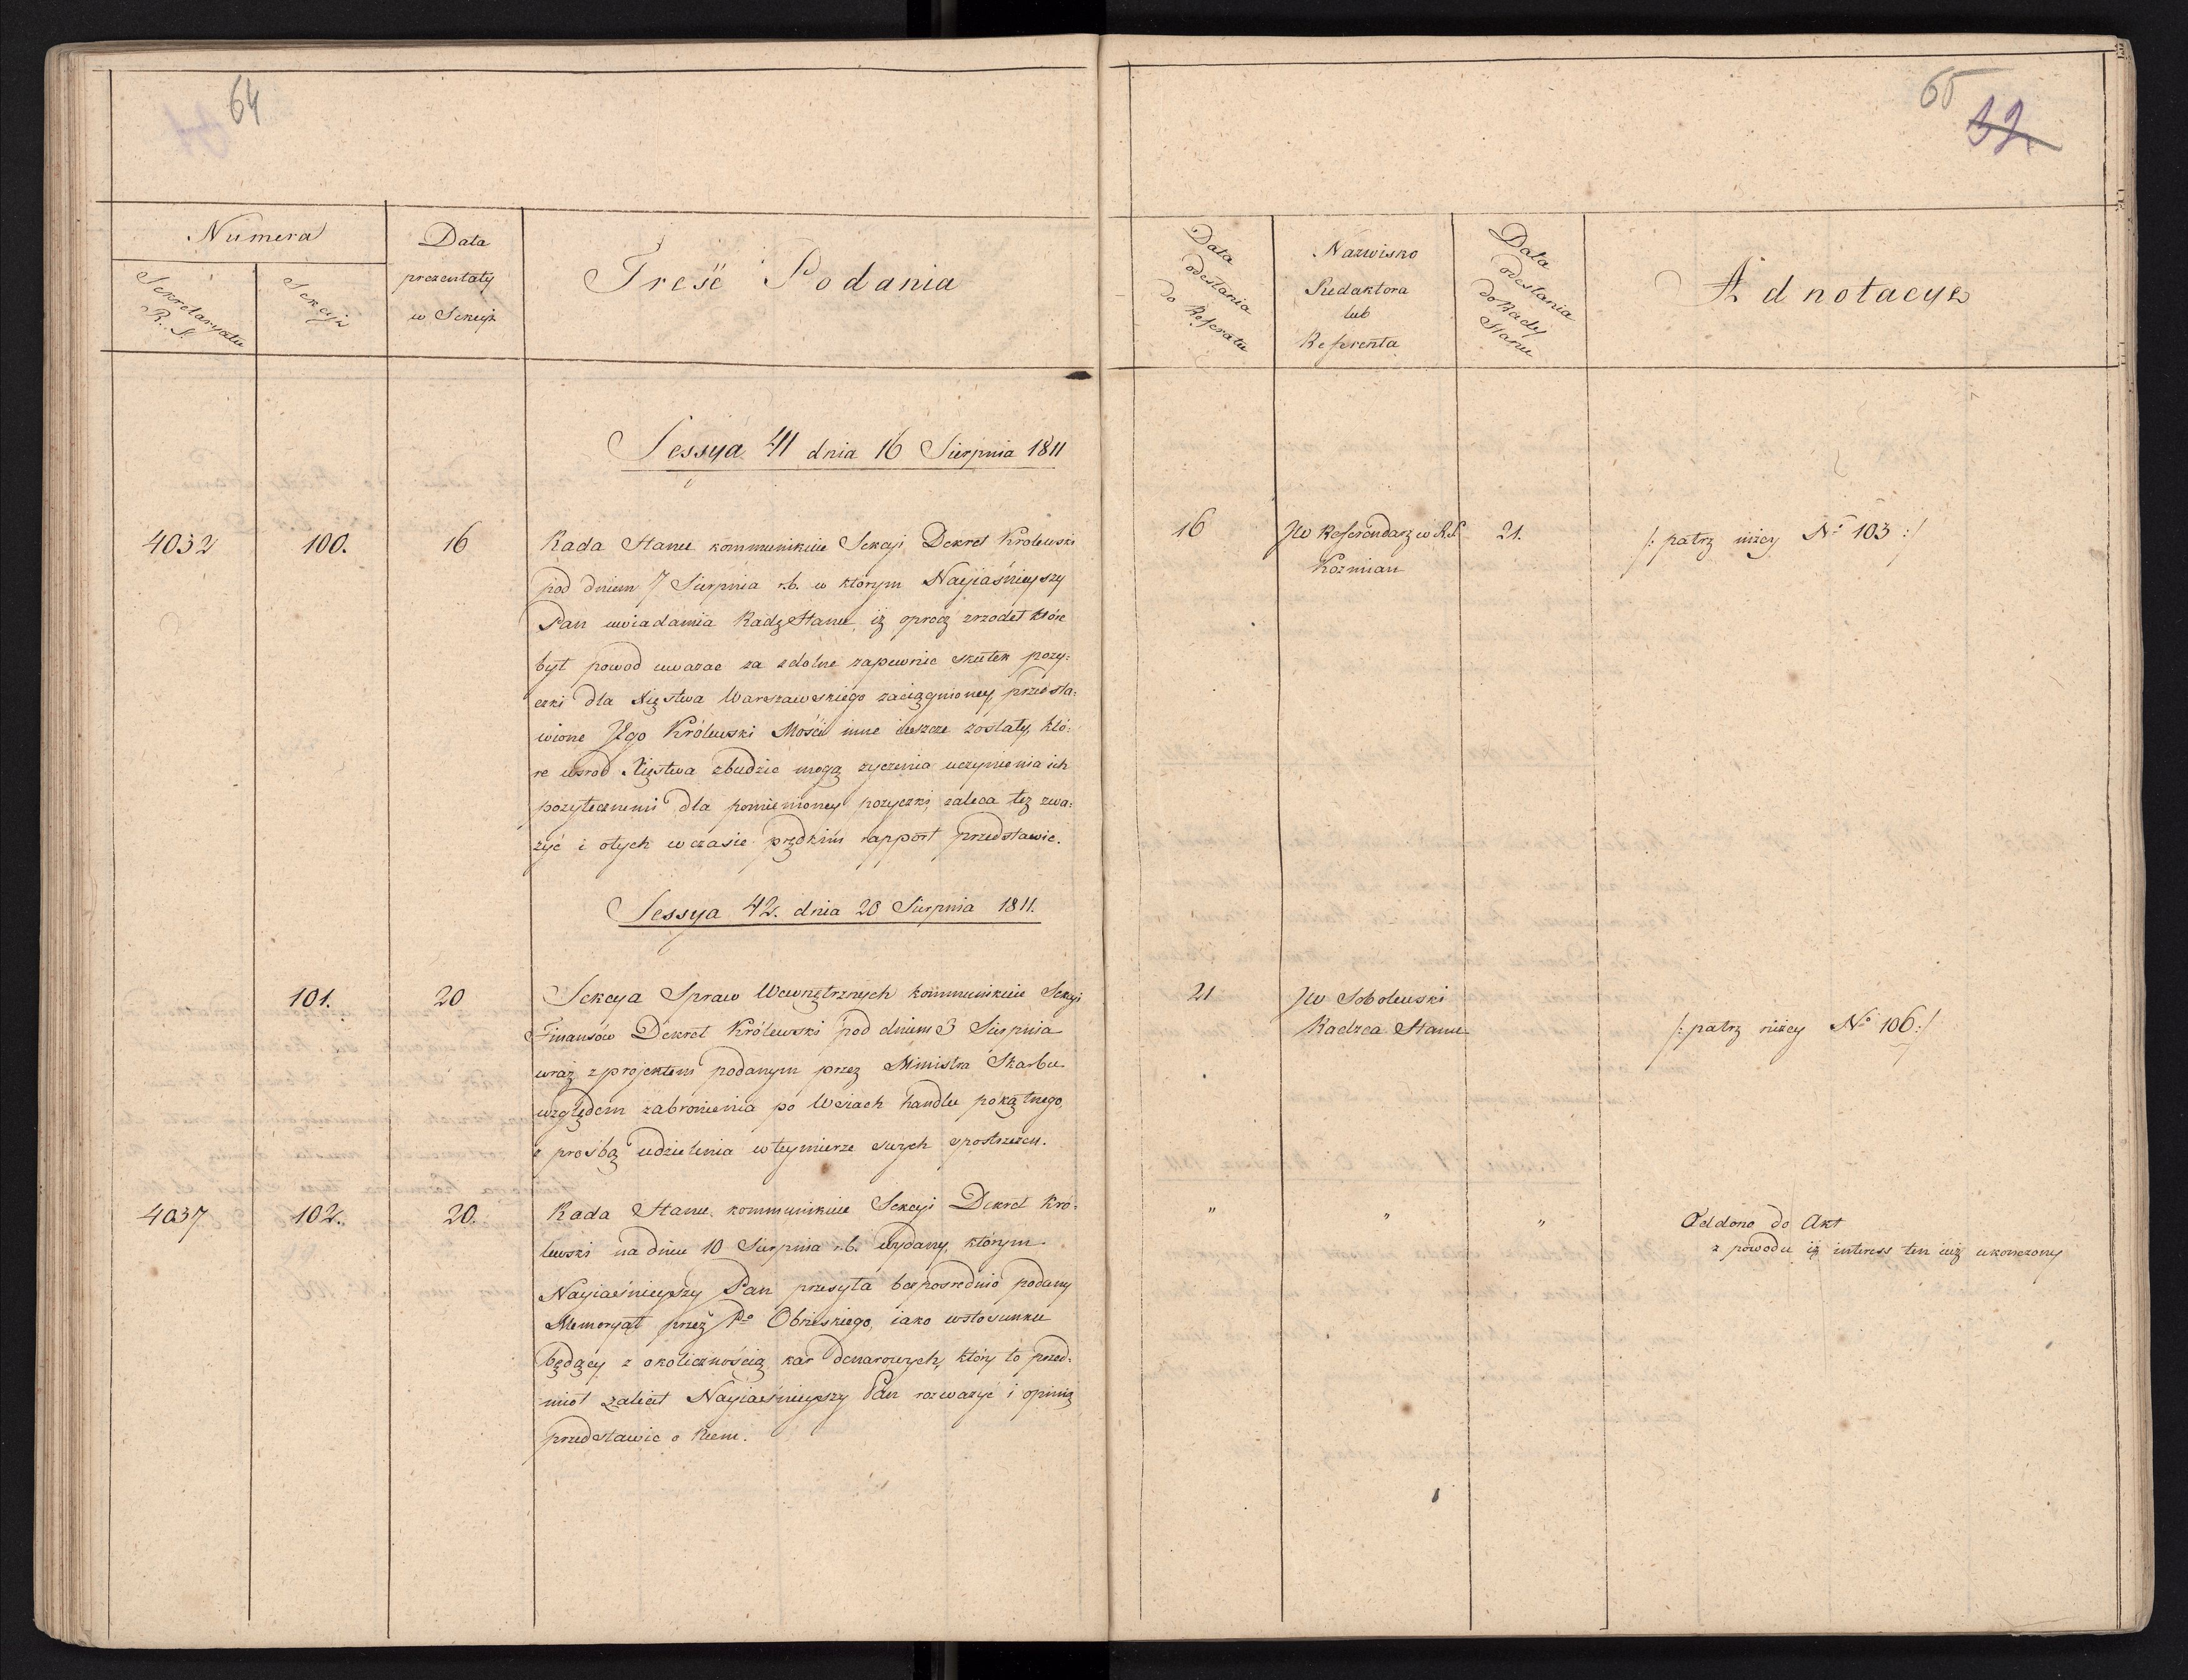 64
Numera
Sekretaryatu R. S.
Sekcyi
Data
prezentaty
w Sekcyi
Treść Podania
Sessya 41 dnia 16 Sierpnia 1811
4032 100. 16
Rada Stanu kommunikuie Sekcyi Dekret Krolewski
pod dniem 7 Sierpnia r.b. w którym Nayiaśnieyszy
Pan uwiadamia Radę Stanu, iż oprócz zrzodeł które
był powod uwazac za zdolne zapewnic skutek pozy:
czki dla Xięstwa Warszawskiego zaciągnioney, przedsta:
wione Jego Królewski Mości inne ieszcze zostały, któ:
re wsrod Xięstwa zbudzic mogą zyczenia uczynienia ich
pozytecznemi dla pomienioney pozyczki, zaleca tez zwa:
zyć i o tych w czasie prędkim rapport przedstawic.
Sessya 42. dnia 20 Sierpnia 1811.
101. 20
Sekcya Spraw Wewnętrznych kommunikuie Sekcyi
Finansów Dekret Królewski pod dniem 3 Sierpnia
wraz z projektem podanym przez Ministra Skarbu
względem zabronienia po Wsiach handlu pokątnego
z prosbą udzielenia w teymierze swych spostrzezen.
4037 102. 20.
Rada Stanu kommunikuie Sekcyi Dekret Kró:
lewski na dniu 10 Sierpnia r.b. wydany, którym
Nayiaśnieyszy Pan przesyła bezposrednio podany
Memoryał przez Po iako w stosunku
będący z okolicznością kar denarowych, który to przed:
miot zalecił Nayiaśnieyszy Pan rozwazyć i opinią
przedstawic o Niem.
65
32
Data odesłania do Referatu
Nazwisko
Redaktora
lub
Referenta
Data odesłania do Rady Stanu
Adnotacye
16 JW Referendarz w R.S. 21. /: patrz niżey No 103 :/
Kozmian
21 JW Sobolewski
Radzca Stanu /: patrz niżey No 106 :/
" " " Oddano do Akt
z powodu iż interess ten iuż ukonczony